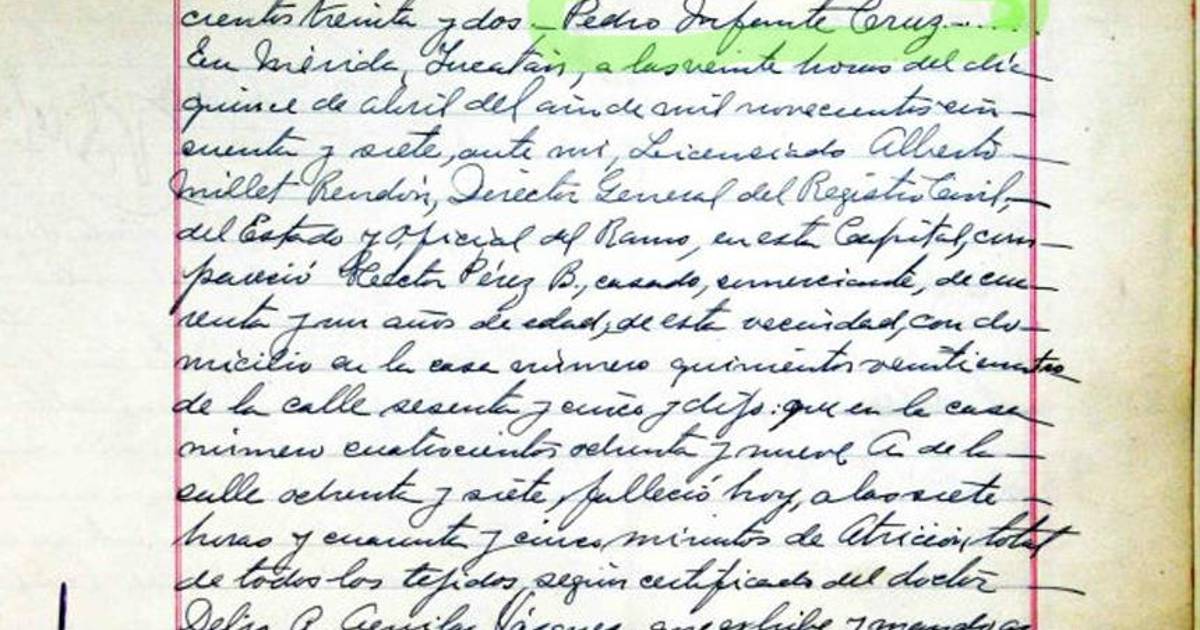 cientos treinta y dos — Pedro Infante Cruz — ....
En Mérida, Yucatán, a las veinte horas del día
quince de abril del año de mil novecientos cin-
cuenta y siete, ante mi, Licenciado Alberto
Millet Rendón, Director General del Registro Civil,
del Estado y Oficial del Ramo, en esta Capital, com-
pareció Hector Pérez B., casado, comerciante, de cua
renta y un años de edad, de esta vecindad, con do-
micilio en la casa número quinientos veinticuatro
de la calle sesenta y cinco y dijo: que en la casa
número cuatrocientos ochenta y nueve A de la
calle ochenta y siete, falleció hoy, a las siete
horas y cuarenta y cinco minutos de Atrición total
de todos los tejidos, según certificado del doctor
Aguilar Vásquez, que exhibe y